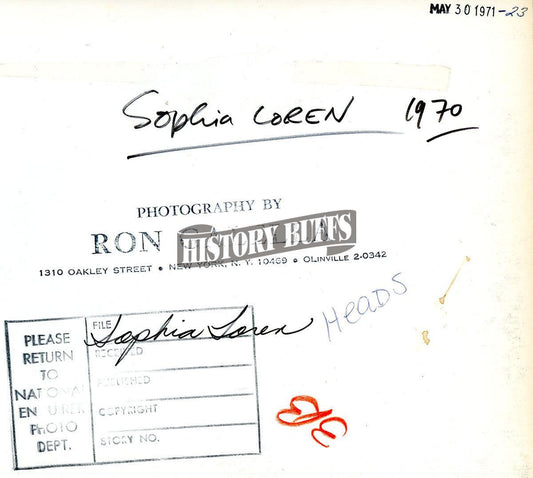 MAY 30 1971 -23
Sophia LOREN 1970
PHOTOGRAPHY BY
RON
HISTORY BUFFS
1310 OAKLEY STREET • NEW YORK, N. Y. 10469 • OLINVILLE 2-0342
HEADS
PLEASE
RETURN
TO
NATIONAL
ENQUIRER
PHOTO
DEPT.
FILE Sophia Loren
RECEIVED
PUBLISHED
COPYRIGHT
STORY NO.